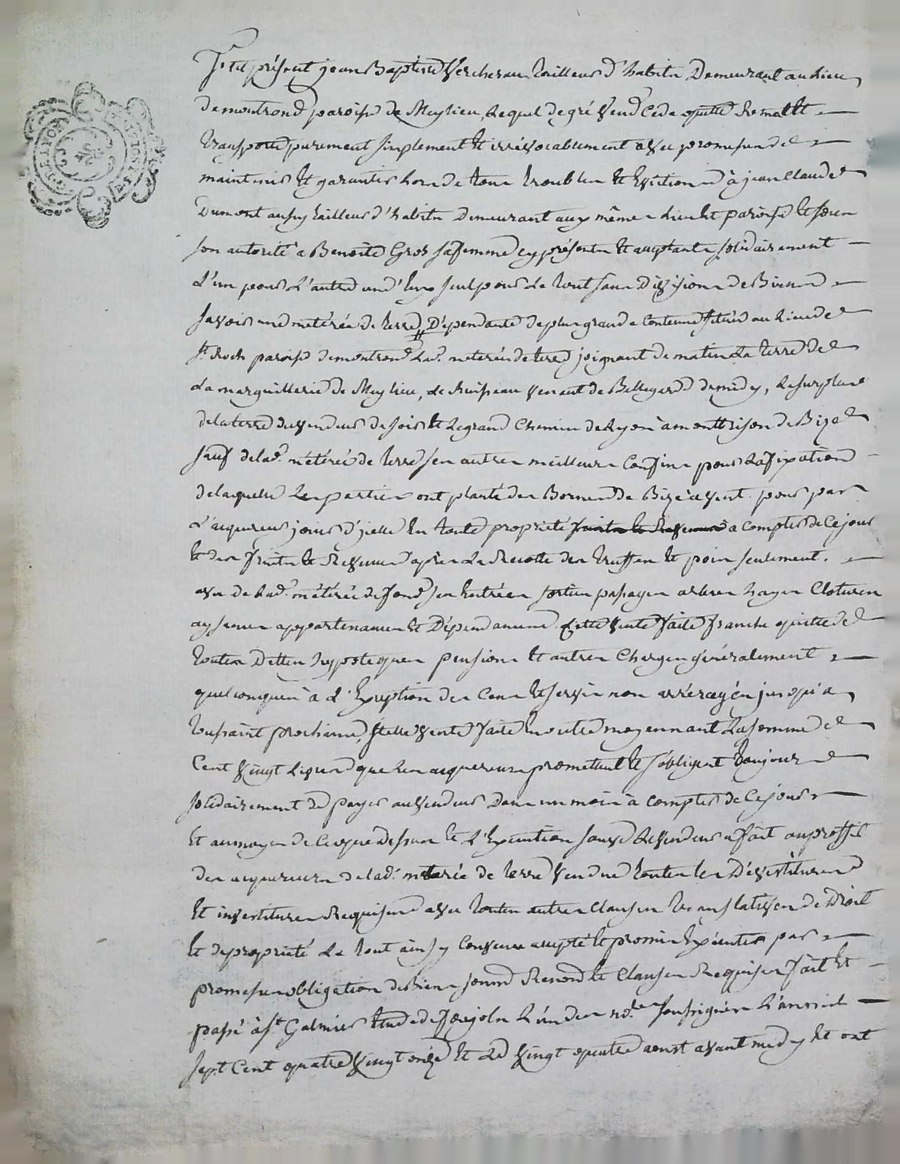 fut présent jean Baptiste Vercherau tailleur d'habits Demeurant au lieu
de montrond paroisse de Meylieu, lequel de gré vend Cede quitte Remet et
transporte purement simplement et irrévocablement avec promesse de
maintenir et garantir hors de tous troubles et Evictions à jean Claude
Dumont aussy tailleur d'habits Demeurant aux même lieu et paroisse et sous
son autorité a Benoite Gros sa femme cy présents et acceptants solidairement
L'un pour L'autre un d'Eux seul pour Le tout sans Division de Biens
savoir une métérée de terre Dépendante de plus grande Contenue située au lieu de
st. Roch paroisse de montrond lad. meterée de terre joignant de matin La terre de
La marguillerie de Meylieu, Le Ruisseau venant de Bellegard de midy, Le surplus
de la terre du vendeur de soir et Le grand Chemin de Lyon à montbrison de Bize
sauf de lad. métérée de terre ses autres meilleurs Confins pour La fixation
de laquelle Les parties ont planté des Bornes de Bize a vent. pour par
L'acquereur jouir d'icelle En toute propriété fruits et Revenus a compter de Ce jour
et des fruits et Revenus après La Recolte des truffes et pois seulement.
avec de Lad. métérée de fond ses Entrées sorties passages arbres hayes Clotures
aysances appartenances et Dépendances. Cette vente faite franche quitte de
toutes Dettes hypoteques pensions et autres Charges généralement
quelconques à L'Exception des Cens et servis non arréragés jusqu'a
toussaint prochaine, et cette vente faite En outre moyennant La somme de
Cent vingt Livres que Les acquereurs promettent et s'obligent toujours
solidairement de payer au vendeur Dans un mois à compter de Ce jour
Et au moyen de Ce que Dessus et L'Execution sauve Le vendeur a fait au proffit
des acquereurs de lad. meterée de terre vendue toutes les Dévestitures
Et investitures Requises avec toutes autres Clauses translatives de Droit
et de propriété Le tout ainsy Convenu accepté et promis Exécuter par
promesses obligation de Biens soumis Renond. et Clauses Requises fait Et
passé à st Galmier Etude de L'un des no.res soussignés L'an mil
sept Cent quatre vingt onze Et Le vingt quatre aoust avant midy Et ont